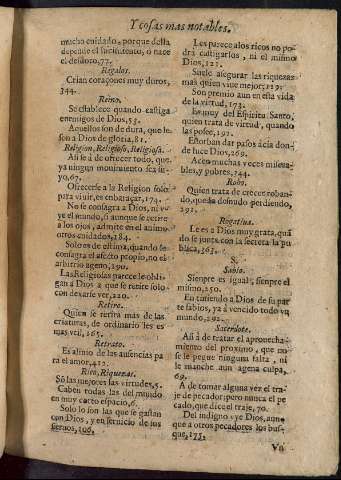 Y cosas mas notables.
mucho cuidado, porque della
depende el lucimiento, ò nace
el desdoro, 77.
Regalos.
Crian coraçones muy duros,
344.
Reino.
Se establece quando castiga
enemigos de Dios, 53.
Aquellos son de dura, que le
son à Dios de gloria, 81.
Religion, Religioso, Religiosa.
Assi se à de ofrecer todo, que
ya ningun movimiento sea su-
yo, 67.
Ofrecerse a la Religion solo
para vivir, es embaraçar, 174.
No se consagra a Dios, ni va
ye el mundo, si aunque se retire
a los ojos, admite en el animo
otros cuidados, 184.
Solo es de estima, quando se
consagra el afecto propio, no el
arbitrio ageno, 190.
Las Religiosas parece le obli-
gan à Dios a que se retire solo
con dexarse ver, 220.
Retiro.
Quien se retira mas de las
criaturas, de ordinario les es
mas vtil, 265.
Retrato.
Es alivio de las ausencias pa
ra el amor, 412.
Rico, Riquezas.
Sò las mejores las virtudes, 5.
Caben todas las del mundo
en muy corto espacio, 6.
Solo lo son las que se gastan
con Dios, y en servicio de los
siervos, 106.
Les parece a los ricos no po-
drà castigarlos, ni el mismo
Dios, 121.
Suele asegurar las riquezas
mas quien vive mejor, 219.
Son premio aun en esta vida
de la virtud, 173.
Es muy del Espiritu Santo,
quien trata de virtud, quando
las posee, 192.
Estorban dar pasos àcia don-
de luce Dios, 269.
Acen muchas veces misera-
bles, y pobres, 344.
Robo.
Quien trata de crecer roban-
do, queda desnudo perdiendo,
292.
Rogativa.
Le es a Dios muy grata, quà
do se junta con la secreta la pu
blica, 363.
S.
Sabio.
Sienpre es igual, sienpre el
mismo, 250.
En teniendo a Dios de su par
te sabios, ya à vencido todo vn
mundo, 292.
Sacerdote.
Assi à de tratar el aprovecha-
miento del proximo, que no
se le pegue ninguna falta, ni
le manche aun agena culpa,
69.
A de tomar alguna vez el tra-
je de pecador, pero nunca el pe
cado, que dice el traje, 70.
Del indigno uye Dios, aun-
que a otros pecadores los bus-
que, 175.
Vn